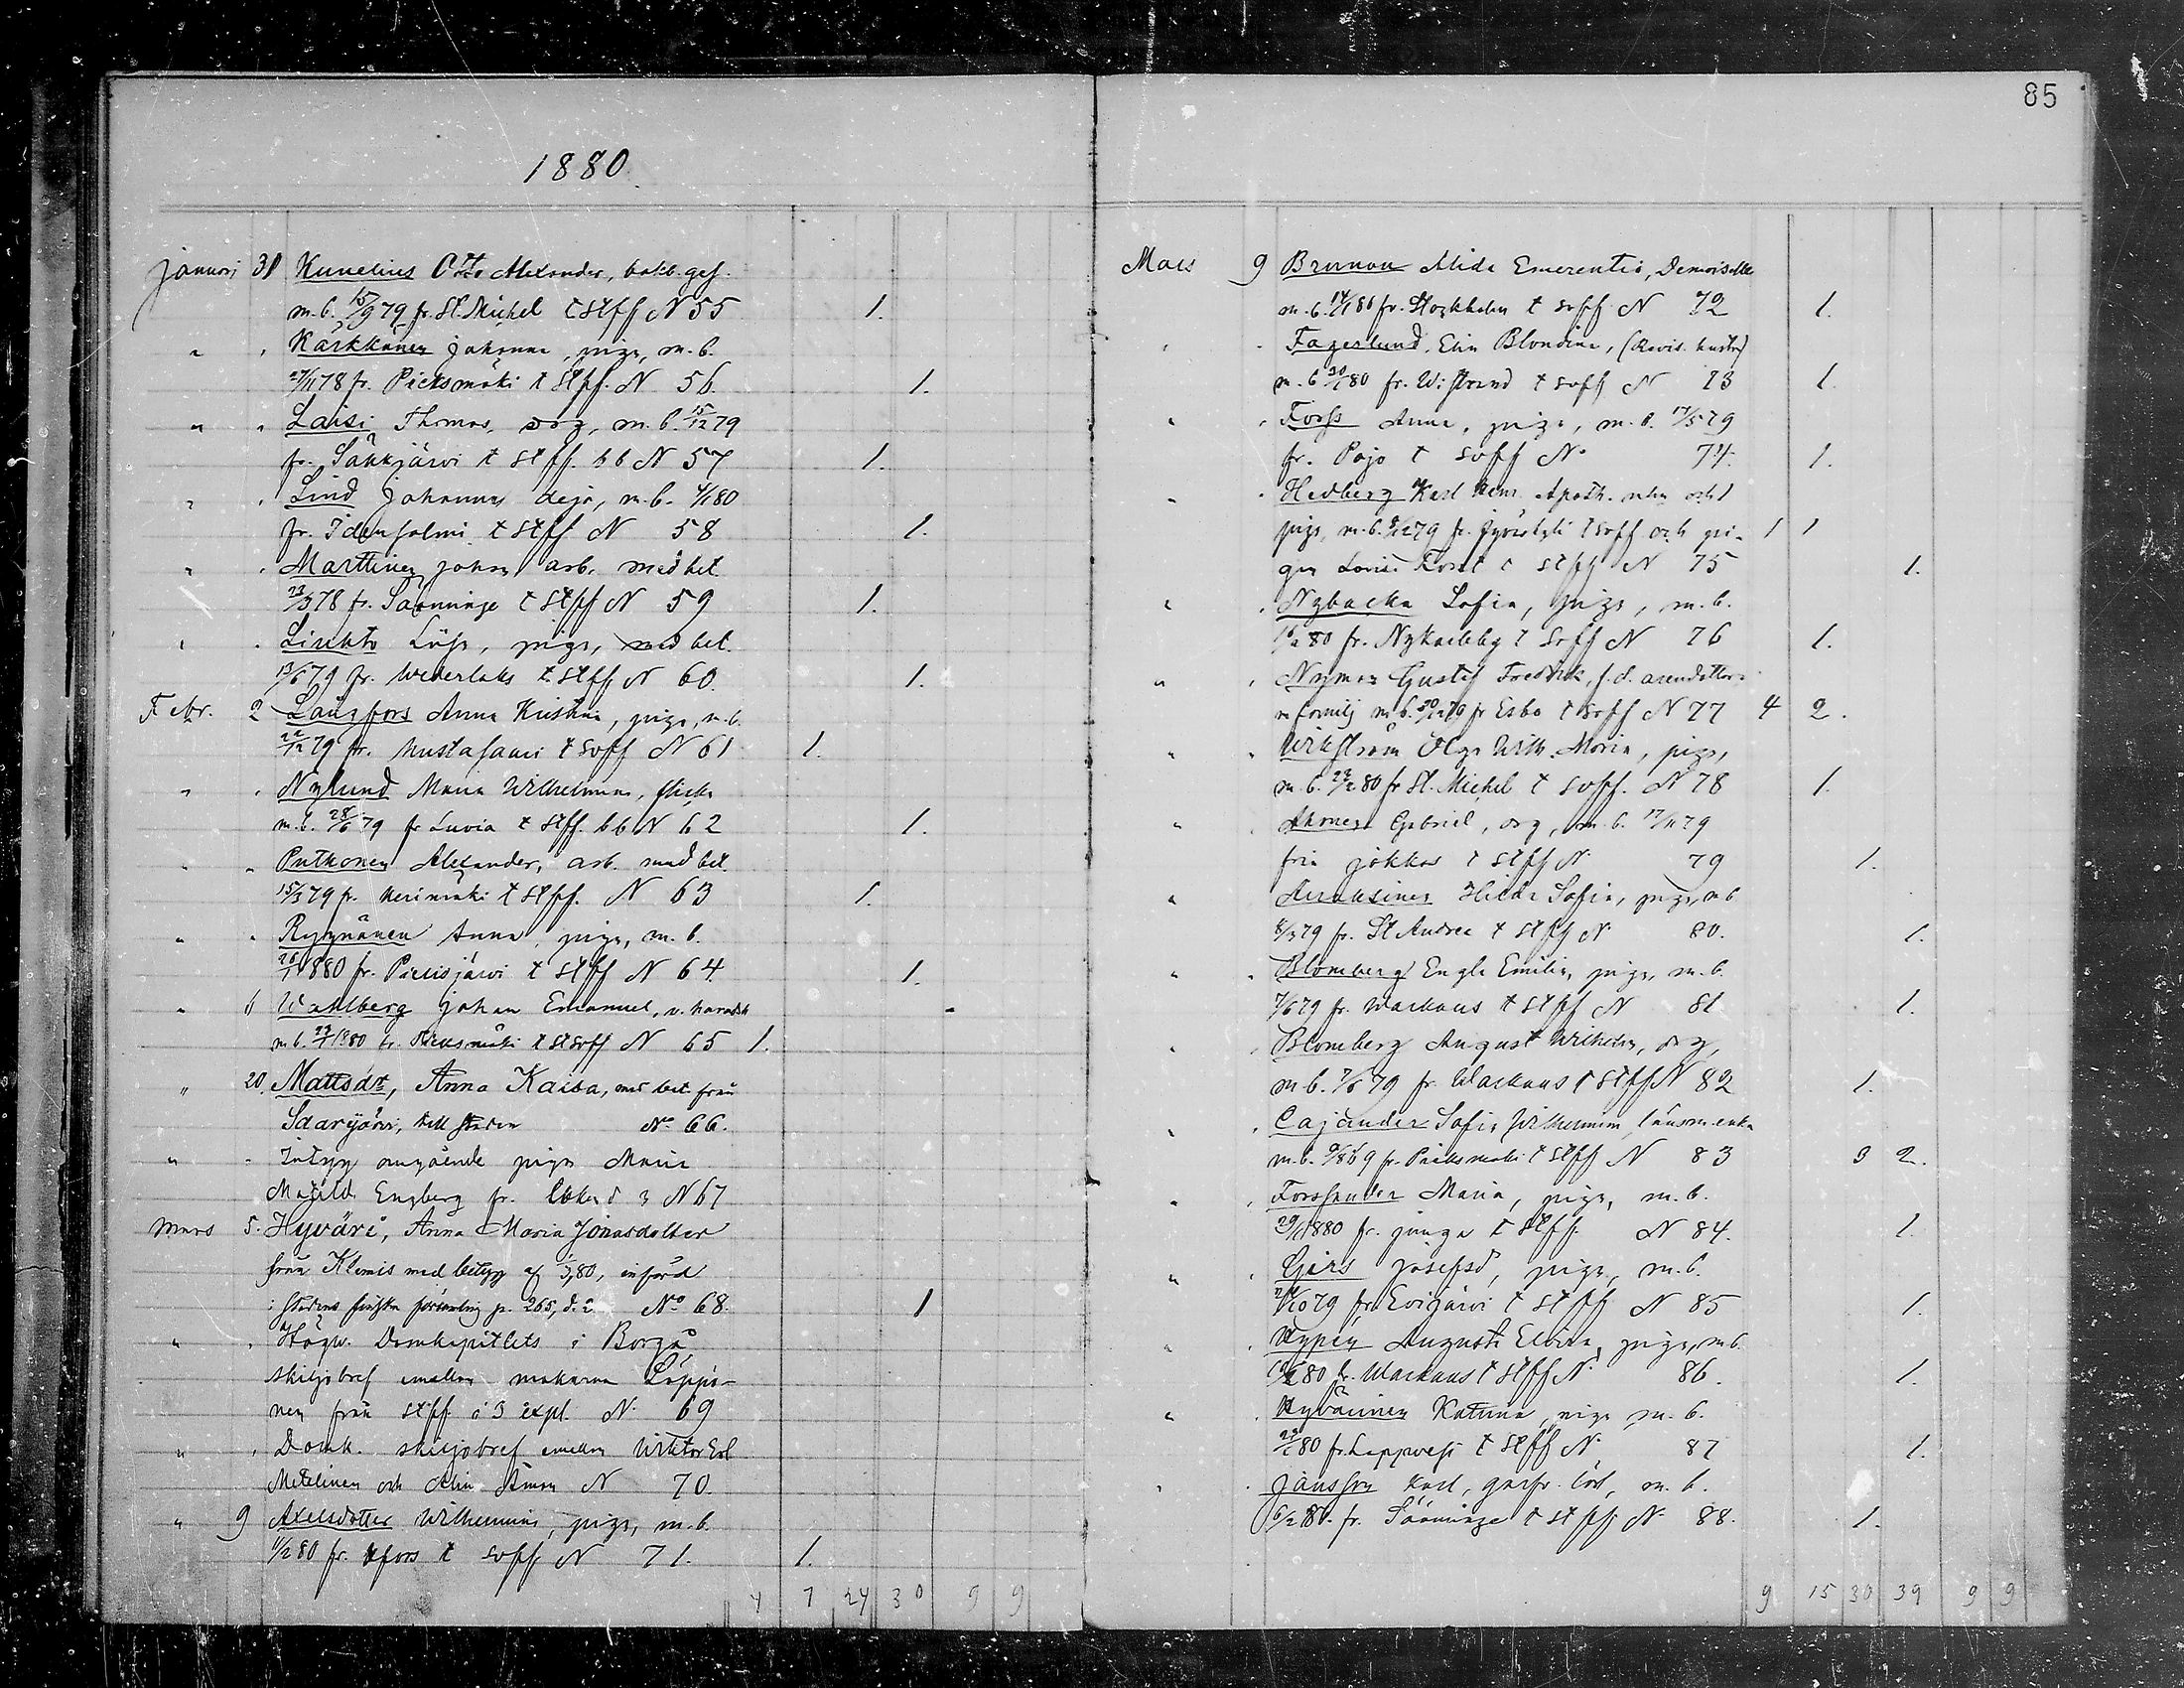 85
1880.
Januari 31 Kunelius Otto Alexander, bokb. ges.
m.b. 15/9 79 fr. St. Michel t Stff N 55 1.
" " Kärkkänen Johanna, piga, m.b.
27/11 78 fr. Pieksmäki t Stff. N 56. 1.
" " Laisi Thomas, drg, m.b. 15/12 79
fr. Säkkjärvi t Stff. bb N 57 1.
" " Lind Johannes deja, m.b. 4/1 80
fr. Idensalmi t Stff N 58 1.
" " Marttinen Johan arb. med bet.
23/3 78 fr. Sääminge t Stff N 59 1.
" " Liukko Lusa, piga, med bet.
13/6 79 fr. Wederlaks t Stff N 60. 1.
Febr. 2 Långfors Anna Kristina, piga, m.b.
22/12 79 fr. Mustasaari t Soff N 61 1.
" " Nylund Maria Wilhelmina, flicka
m.b. 28/6 79 fr Luvia t Stff. bb N 62 1.
" " Putkonen Alexander, arb. med bet.
15/3 79 fr. Kerimäki t Stff. N 63 1.
" " Ryynänen Anna, piga, m.b.
26/1 1880 fr. Pielisjärvi t Stff N 64 1.
" 6 Wahlberg Johan Emanuel, v. häradsh
m.b. 27/1 1880 fr. Pieksmäki t St Soff N 65 1.
" 20. Mattsdr, Anna Kaisa, med bet. från
Saarijärvi, till staden No 66.
" " Intyg angående pigan Maria
Matild. Engberg fr. N 67
Mars 5. Hyväri, Anna Maria Jonasdotter
från Klemis med betyg af 1/3 80, införd
i stadens finska församling p. 265, d. 2 No 68. 1
" " Högv. Domkapitlets i Borgå
skiljobref emellan makarna Läppi-
nen från Stff i 3 expl. N 69
" " Domk. skiljobref emellan Wiktor Erl
Metelinen och Alin Åman N 70.
" 9 Axelsdotter Wilhelmina, piga, m.b.
11/2 80 fr. Hfors t Soff N 71. 1.
4 7 24 30 9 9
Mars 9 Brunou Alida Emerentia, Demoiselle
m.b. 14/1 80 fr. Stockholm t Soff N 72 1.
" " Fagerlund, Elin Blondina, (Revis. hustru)
m.b 30/1 80 fr. Wistrand t Soff N 73 1.
" " Forss Anna, piga, m.b. 17/5 79
fr. Pojo t Soff N. 74. 1.
" " Hedberg Karl Henr. Apoth. elev och 1
piga, m.b. 8/12 79 fr. Jyväskylä t Soff och pi- 1 1
gan Lovisa Forst t Stff N 75 1.
" " Nybacka Sofia, piga, m.b.
16/2 80 fr. Nykarleby t Soff N 76 1.
" " Nyman Gustaf Fredrik, f.d. arendator
m familj m.b. 30/12 79 fr Esbo t Soff N 77 4 2.
" " Wikström Olga Wilh. Maria, piga,
m.b. 23/2 80 fr St. Michel t Soff. N 78 1.
" " Ahonen Gabriel, drg, m.b. 17/11 79
från Jokkas t Stff N 79 1.
" " Airaksinen Hilda Sofia, piga, m b
8/3 79 fr. St Andree t Stff N 80. 1.
" " Blomberg Engla Emilia, piga, m.b.
7/6 79 fr. Warkaus t Stff N 81 1.
" " Blomberg August Wilhelm, drg,
m.b. 7/6 79 fr. Warkaus t Stff N 82 1.
" " Cajander Sofia Wilhelmina länsm. enka
m.b. 9/8 69 fr. Pieksmäki t Stff N 83 3 2.
" " Forssander Maria, piga, m.b.
29/1 1880 fr. Jonga t Stff. N 84. 1.
" " Gers Josefsd, piga, m.b.
21/10 79 fr Evijärvi t Stff N 85 1.
" " Hypén Augusta Elvira, piga, m.b.
10/2 80 fr. Warkaus t Stff N. 86. 1.
" " Hyvärinen Katarina, piga m.b.
27/1 80 fr. Lappvesi t Stff N 87 1.
" " Jansson Karl, garfv. lärl, m.b.
6/2 80. fr. Sääminge t Stff. N. 88. 1.
9 15 30 39 9 9